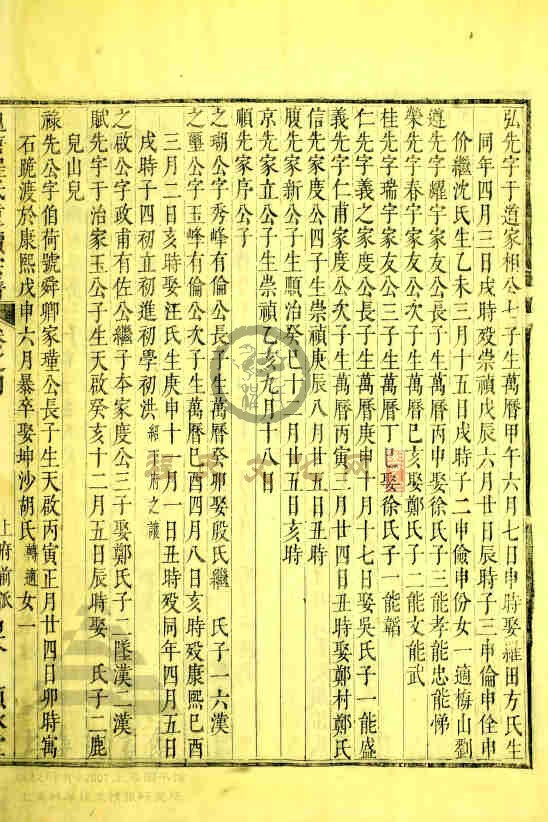 弘先字干道家相公七子生萬曆甲午六月七日申時娶羅田方氏生
同年四月三日戌時歿崇禎戊辰六月廿日辰時子三申倫申佺申
价繼沈氏生乙未三月十五日戌時子二申儉申份女一適梅山劉
遵先字耀宇家友公長子生萬曆丙申娶徐氏子三能孝能忠能悌
榮先字春宇家友公次子生萬曆己亥娶鄭氏子二能文能武
桂先字瑞宇家友公三子生萬曆丁巳娶徐氏子一能韜
仁先字義之家度公長子生萬曆庚申十月十七日娶吳氏子一能盛
義先字仁甫家度公次子生萬曆丙寅二月廿四日丑時娶鄭村鄭氏
信先家度公四子生崇禎庚辰八月廿五日丑時
腹先家新公子生順治癸巳十一月廿五日亥時
京先家立公子生崇禎乙亥九月十八日
順先家序公子
之瑚公字秀峰有倫公長子生萬曆癸卯娶殷氏繼 氏子一六漢
之璽公字玉峰有倫公次子生萬曆己酉四月八日亥時歿康熙己酉
三月二日亥時娶汪氏生庚申十一月一日丑時歿同年四月五日
戌時子四初立初進初學初洪
之啟公字政甫有佐公繼子本家度公三子娶鄭氏子二陞漢二漢
賦先字干治家玉公子生天啟癸亥十二月五日辰時娶 氏子二鹿
兒山兒
祿先公字伯荷號舜卿家瑾公長子生天啟丙寅正月廿四日卯時寓
石跪渡於康熙戊申六月暴卒娶坤沙胡氏轉適女一
上府前派